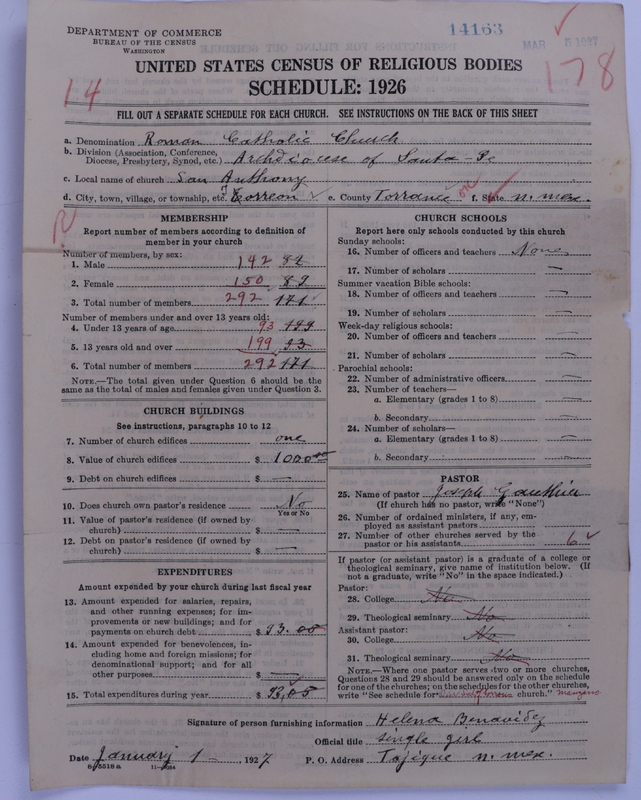 DEPARTMENT OF COMMERCE
BUREAU OF THE CENSUS
WASHINGTON
14163
MAR 5 1927
UNITED STATES CENSUS OF RELIGIOUS BODIES
SCHEDULE: 1926
14
178
FILL OUT A SEPARATE SCHEDULE FOR EACH CHURCH. SEE INSTRUCTIONS ON THE BACK OF THIS SHEET
a. Denomination Roman Catholic Church
b. Division (Association, Conference, Diocese, Presbytery, Synod, etc.) Archdiocese of Santa-Fe
c. Local name of church San Anthony
d. City, town, village, or township, etc. Torreon e. County Torrance f. State n. mex.
MEMBERSHIP
Report number of members according to definition of
member in your church
Number of members, by sex:
1. Male 142 82
2. Female 150 89
3. Total number of members 292 171
Number of members under and over 13 years old:
4. Under 13 years of age 93
5. 13 years old and over 199 93
6. Total number of members 292 171
NOTE.—The total given under Question 6 should be the
same as the total of males and females given under Question 3.
CHURCH BUILDINGS
See instructions, paragraphs 10 to 12
7. Number of church edifices one
8. Value of church edifices $ 1000.00
9. Debt on church edifices $ —
10. Does church own pastor's residence No
Yes or No
11. Value of pastor's residence (if owned by
church) $ —
12. Debt on pastor's residence (if owned by
church) $ —
EXPENDITURES
Amount expended by your church during last fiscal year
13. Amount expended for salaries, repairs,
and other running expenses; for im-
provements or new buildings; and for
payments on church debt $ 93.05
14. Amount expended for benevolences, in-
cluding home and foreign missions; for
denominational support; and for all
other purposes $ —
15. Total expenditures during year $ 93.05
CHURCH SCHOOLS
Report here only schools conducted by this church
Sunday schools:
16. Number of officers and teachers None
17. Number of scholars —
Summer vacation Bible schools:
18. Number of officers and teachers —
19. Number of scholars —
Week-day religious schools:
20. Number of officers and teachers —
21. Number of scholars —
Parochial schools:
22. Number of administrative officers —
23. Number of teachers—
a. Elementary (grades 1 to 8) —
b. Secondary —
24. Number of scholars—
a. Elementary (grades 1 to 8) —
b. Secondary —
PASTOR
25. Name of pastor Joseph Gauthier
(If church has no pastor, write "None")
26. Number of ordained ministers, if any, em-
ployed as assistant pastors
27. Number of other churches served by the
pastor or his assistants 6
If pastor (or assistant pastor) is a graduate of a college or
theological seminary, give name of institution below. (If
not a graduate, write "No" in the space indicated.)
Pastor:
28. College No
29. Theological seminary No
Assistant pastor:
30. College No
31. Theological seminary No
NOTE.—Where one pastor serves two or more churches,
Questions 28 and 29 should be answered only on the schedule
for one of the churches; on the schedules for the other churches,
write "See schedule for church." Manzano
Signature of person furnishing information Helena Benavidez
Official title single girl
Date January 1 —, 1927 P. O. Address Tajique n. mex.
8-5518a